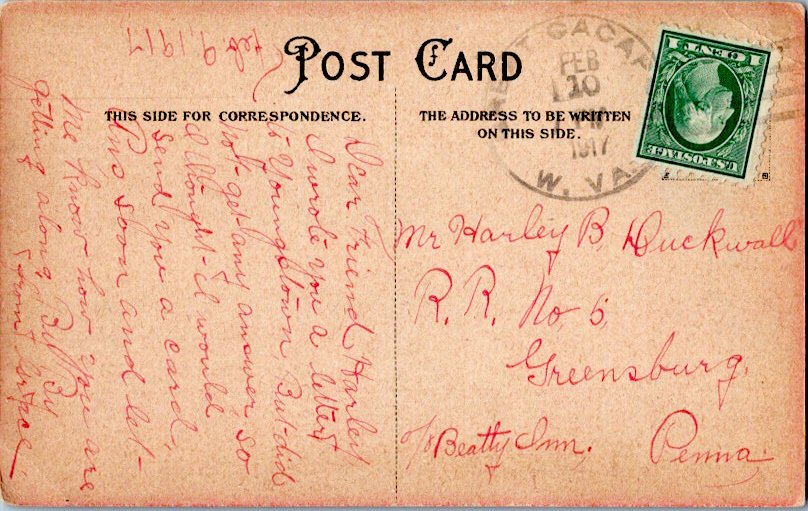 POST CARD
THIS SIDE FOR CORRESPONDENCE.
THE ADDRESS TO BE WRITTEN
ON THIS SIDE.
GREAT CACAPON
FEB
10
1917
W. VA.
1 CENT 1
U.S. POSTAGE
Feb 9, 1917
Dear Friend Harley
I wrote you a letter
to Youngstown, But did
not get any answer so
I thought I would
send you a card,
Ans soon and let
me know how you are
getting along By By
from
Mr Harley B. Duckwall
R. R. No, 5,
Greensburg.
c/o Beatty Inn. Penna.